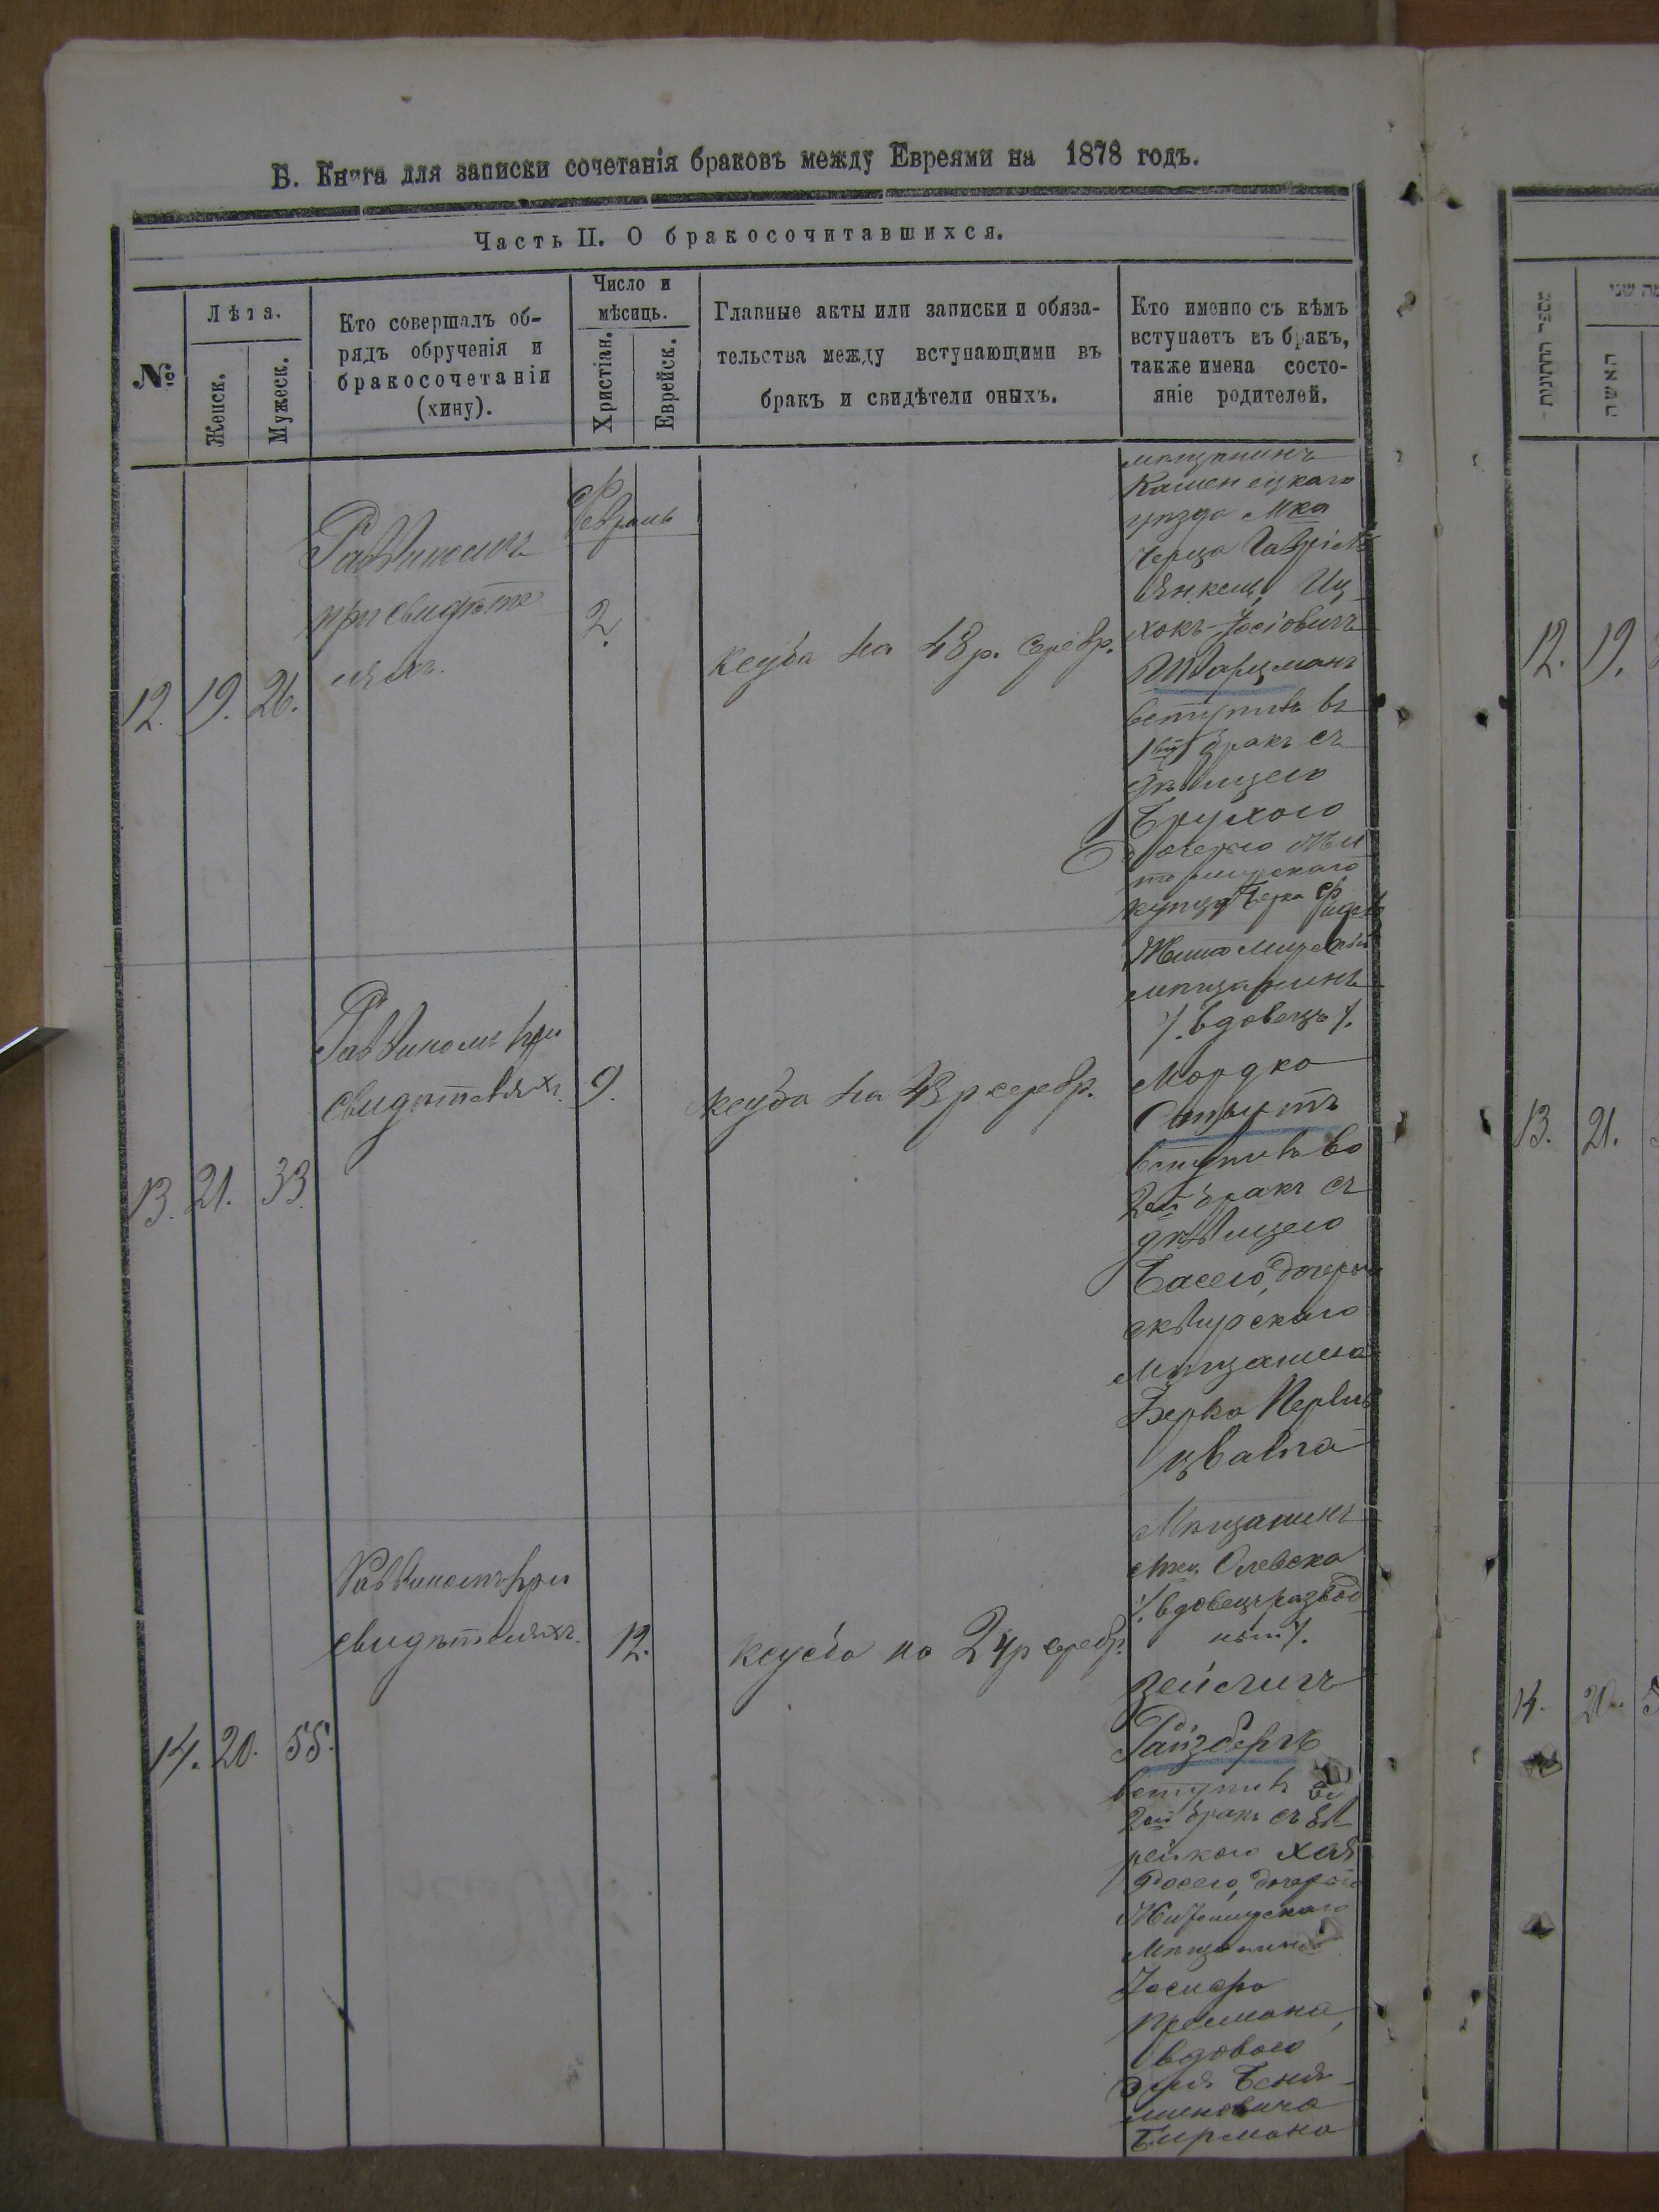 Б. Книга для записки сочетанія браковъ между Евреями на 1878 годъ.
Часть II. О бракосочитавшихся.
№
Лѣта.
Женск.
Мужеск.
Кто совершалъ об-
рядъ обрученія и
бракосочетаніи
(хину).
Число и
мѣсяцъ.
Христіан.
Еврейск.
Главные акты или записки и обяза-
тельства между вступающими въ
бракъ и свидѣтели оныхъ.
Кто именно съ кѣмъ
вступаетъ въ бракъ,
также имена состо-
яніе родителей.
12. 19. 26.
Раввиномъ
при свидѣте
ляхъ.
Февраль
2.
ксуба на 48 р. серебр.
мѣщанинъ
Каменецкаго
уѣзда
Янкель, Иц
хокъ-Іосіовичъ
Шварцманъ
вступилъ въ
1вый бракъ съ
дѣвицею
Брухою
дочерью Жи
томирскаго
купца Берка
13. 21. 33.
Раввиномъ при
свидѣтеляхъ.
9.
ксуба на 48 р серебр.
Житомирскій
мѣщанинъ
/. вдовецъ /.
Мордко
вступилъ во
2ой бракъ съ
дѣвицею
Басею, дочерью
сквирскаго
мѣщанина
Берка
14. 20. 55.
Раввиномъ при
свидѣтеляхъ.
12.
ксуба на 24 р серебр.
Мѣщанинъ
мѣст. Олевска
/. вдовецъ развод
ный /.
Зейлигъ
Райзбергъ
вступилъ во
2ой бракъ съ ев
рейкою Хая
Досею, дочерью
Житомирскаго
мѣщанина
Іосифа
вдовою
Беня
миновича
Бирмана
מספר החתונות
האשה
12. 19.
13. 21.
14. 20. 5